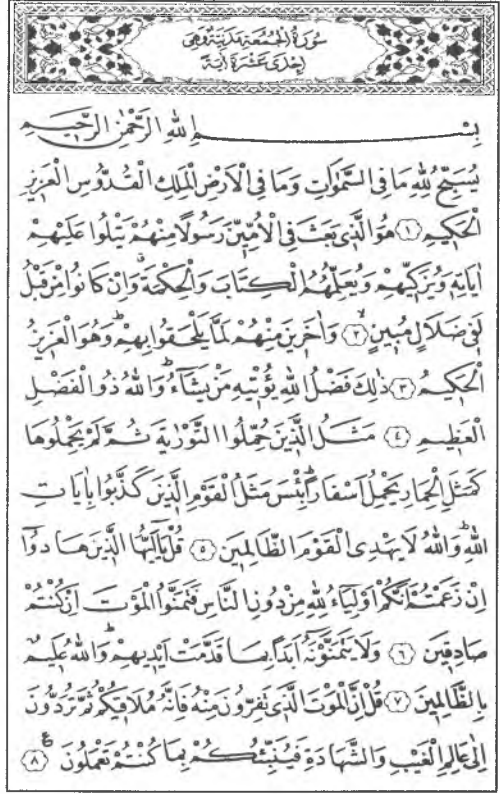 سُورَةُ الْجُمُعَةِ مَدَنِيَّةٌ وَهِىَ
اِحْدٰى عَشْرَةَ اٰيَةً
بِسْمِ اللّٰهِ الرَّحْمٰنِ الرَّحٖيمِ
يُسَبِّحُ لِلّٰهِ مَا فِى السَّمٰوَاتِ وَمَا فِى الْاَرْضِ الْمَلِكِ الْقُدُّوسِ الْعَزٖيزِ
الْحَكٖيمِ ﴿١﴾ هُوَ الَّذٖى بَعَثَ فِى الْاُمِّيّٖنَ رَسُولًا مِنْهُمْ يَتْلُوا عَلَيْهِمْ
اٰيَاتِهٖ وَيُزَكّٖيهِمْ وَيُعَلِّمُهُمُ الْكِتَابَ وَالْحِكْمَةَ وَاِنْ كَانُوا مِنْ قَبْلُ
لَفٖى ضَلَالٍ مُبٖينٍۙ ﴿٢﴾ وَاٰخَرٖينَ مِنْهُمْ لَمَّا يَلْحَقُوا بِهِمْؕ وَهُوَ الْعَزٖيزُ
الْحَكٖيمُ ﴿٣﴾ ذٰلِكَ فَضْلُ اللّٰهِ يُؤْتٖيهِ مَنْ يَشَاءُؕ وَاللّٰهُ ذُو الْفَضْلِ
الْعَظٖيمِ ﴿٤﴾ مَثَلُ الَّذٖينَ حُمِّلُوا التَّوْرٰيةَ ثُمَّ لَمْ يَحْمِلُوهَا
كَمَثَلِ الْحِمَارِ يَحْمِلُ اَسْفَارًاؕ بِئْسَ مَثَلُ الْقَوْمِ الَّذٖينَ كَذَّبُوا بِاٰيَاتِ
اللّٰهِؕ وَاللّٰهُ لَا يَهْدِى الْقَوْمَ الظَّالِمٖينَ ﴿٥﴾ قُلْ يَا اَيُّهَا الَّذٖينَ هَادُوا
اِنْ زَعَمْتُمْ اَنَّكُمْ اَوْلِيَاءُ لِلّٰهِ مِنْ دُونِ النَّاسِ فَتَمَنَّوُا الْمَوْتَ اِنْ كُنْتُمْ
صَادِقٖينَ ﴿٦﴾ وَلَا يَتَمَنَّوْنَهُٓ اَبَدًا بِمَا قَدَّمَتْ اَيْدٖيهِمْؕ وَاللّٰهُ عَلٖيمٌ
بِالظَّالِمٖينَ ﴿٧﴾ قُلْ اِنَّ الْمَوْتَ الَّذٖى تَفِرُّونَ مِنْهُ فَاِنَّهُ مُلَاقٖيكُمْ ثُمَّ تُرَدُّونَ
اِلٰى عَالِمِ الْغَيْبِ وَالشَّهَادَةِ فَيُنَبِّئُكُمْ بِمَا كُنْتُمْ تَعْمَلُونَ ع ﴿٨﴾